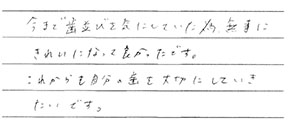 今まで歯並びを気にしていた為、無事に
きれいになって良かったです。
これからも自分の歯を大切にしていき
たいです。